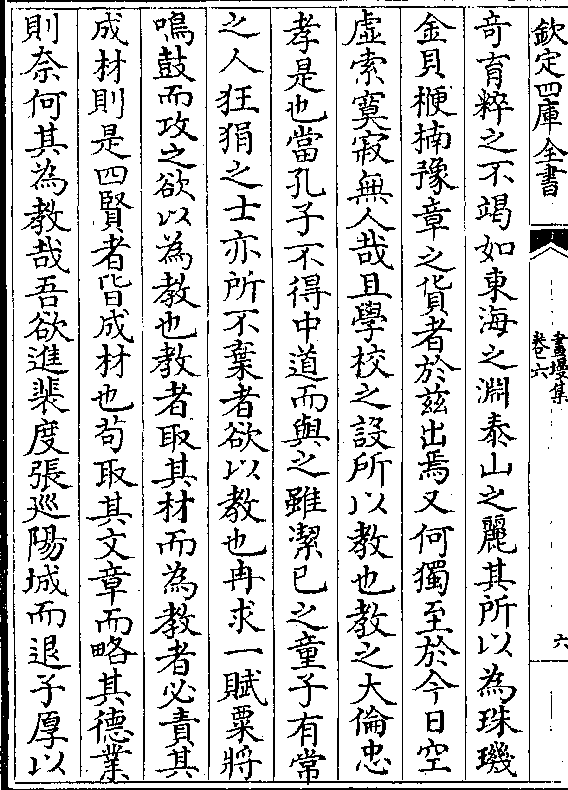 欽定四庫全書
畫墁集
卷六
六
奇育粹之不竭如東海之淵泰山之麗其所以為珠璣
金貝楩楠豫章之貨者於兹出焉又何獨至於今日空
虚索寞寂無人哉且學校之設所以教也教之大倫忠
孝是也當孔子不得中道而與之雖潔已之童子有常
之人狂狷之士亦所不棄者欲以教也冉求一賦粟將
鳴鼓而攻之欲以為教也教者取其材而為教者必責其
成材則是四賢者皆成材也苟取其文章而略其德業
則奈何其為教哉吾欲進裴度張巡陽城而退子厚以